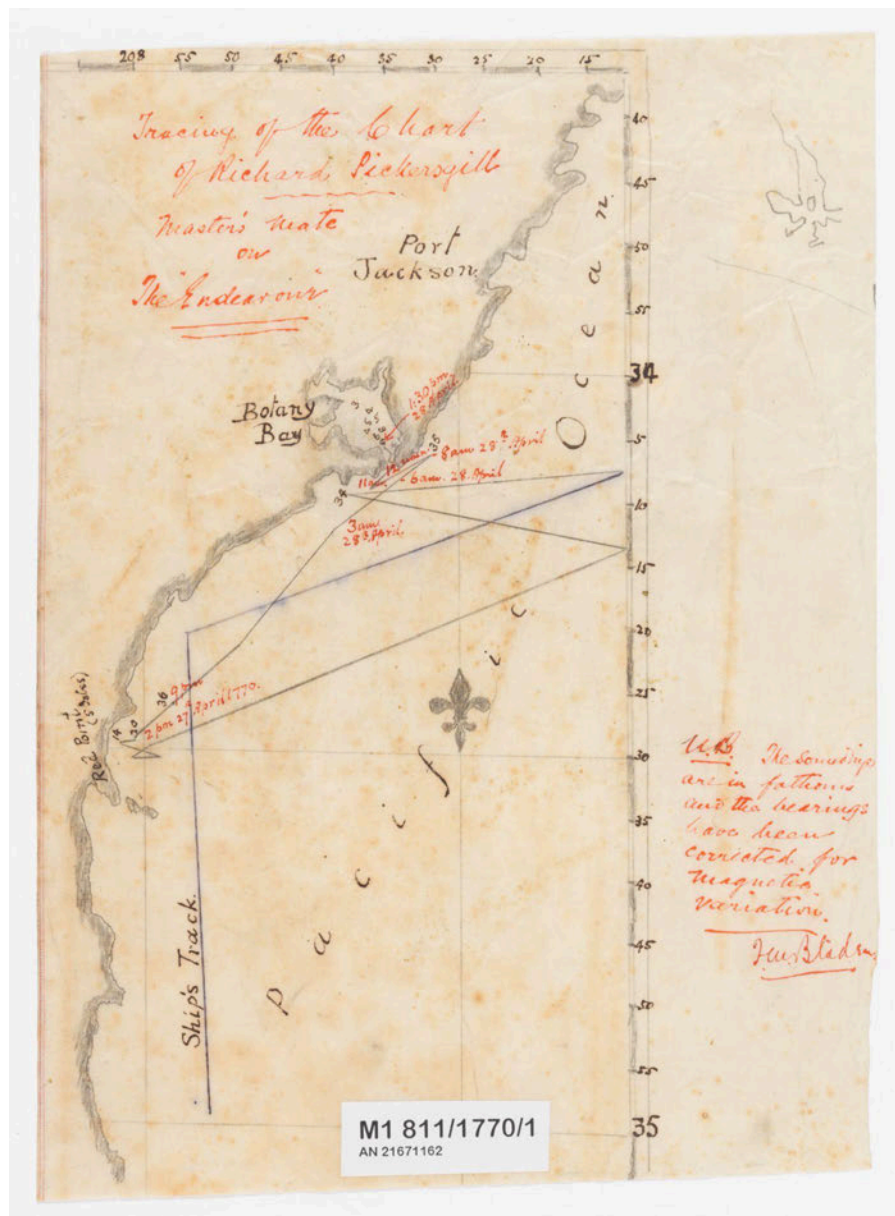 208 55 50 45 40 35 30 25 20 15
Tracing of the Chart
of Richard Pickersgill
Master's Mate
on
The "Endeavour"
Port
Jackson
Botany
Bay
1.30 pm
28 April
35
8 am 28th April
12 noon
11 am
6 am 28 April
38
3 am
28th April
9 pm
36
2 pm 27th April 1770.
20
14
Red Point
Ship's Track
Pacific
Ocean
40
45
50
55
34
5
10
15
20
25
30
35
40
45
50
55
35
N.B. The soundings
are in fathoms
and the bearings
have been
corrected for
magnetic
variation.
M1 811/1770/1
AN 21671162